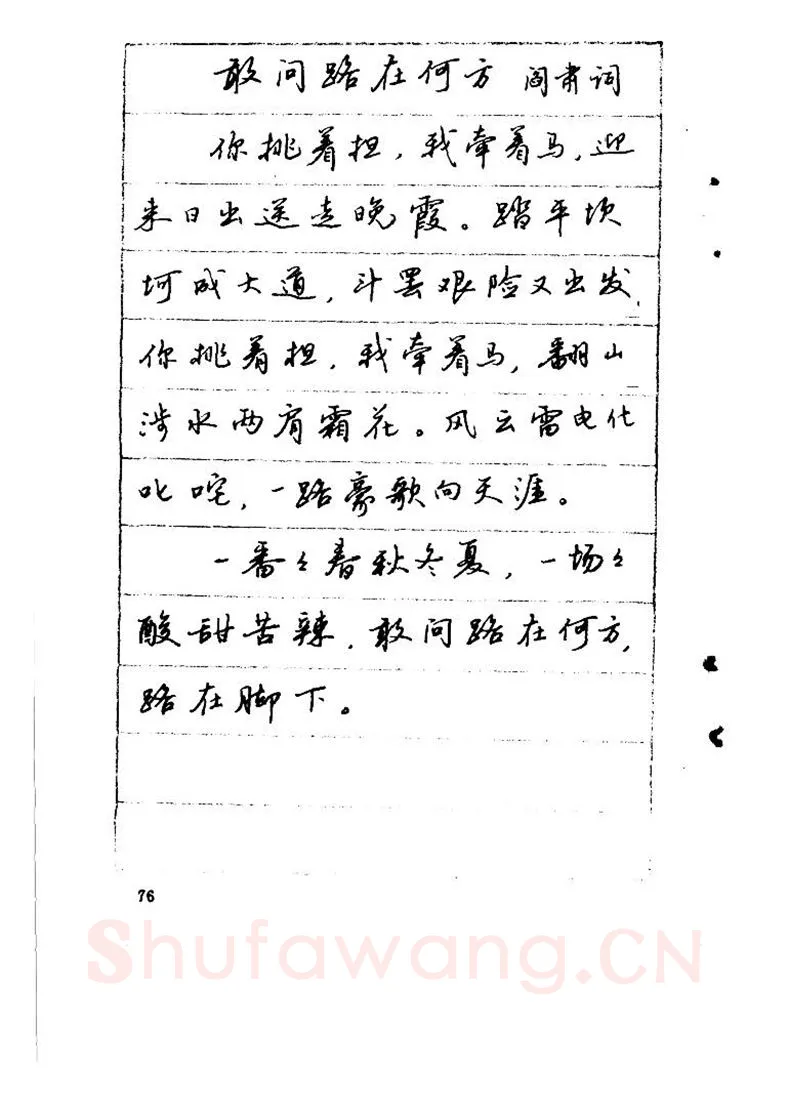 敢问路在何方 阎肃词
你挑着担，我牵着马，迎
来日出送走晚霞。踏平坎
坷成大道，斗罢艰险又出发，
你挑着担，我牵着马，翻山
涉水两肩霜花。风云雷电任
叱咤，一路豪歌向天涯。
一番々春秋冬夏，一场々
酸甜苦辣，敢问路在何方，
路在脚下。
76
Shufawang.CN